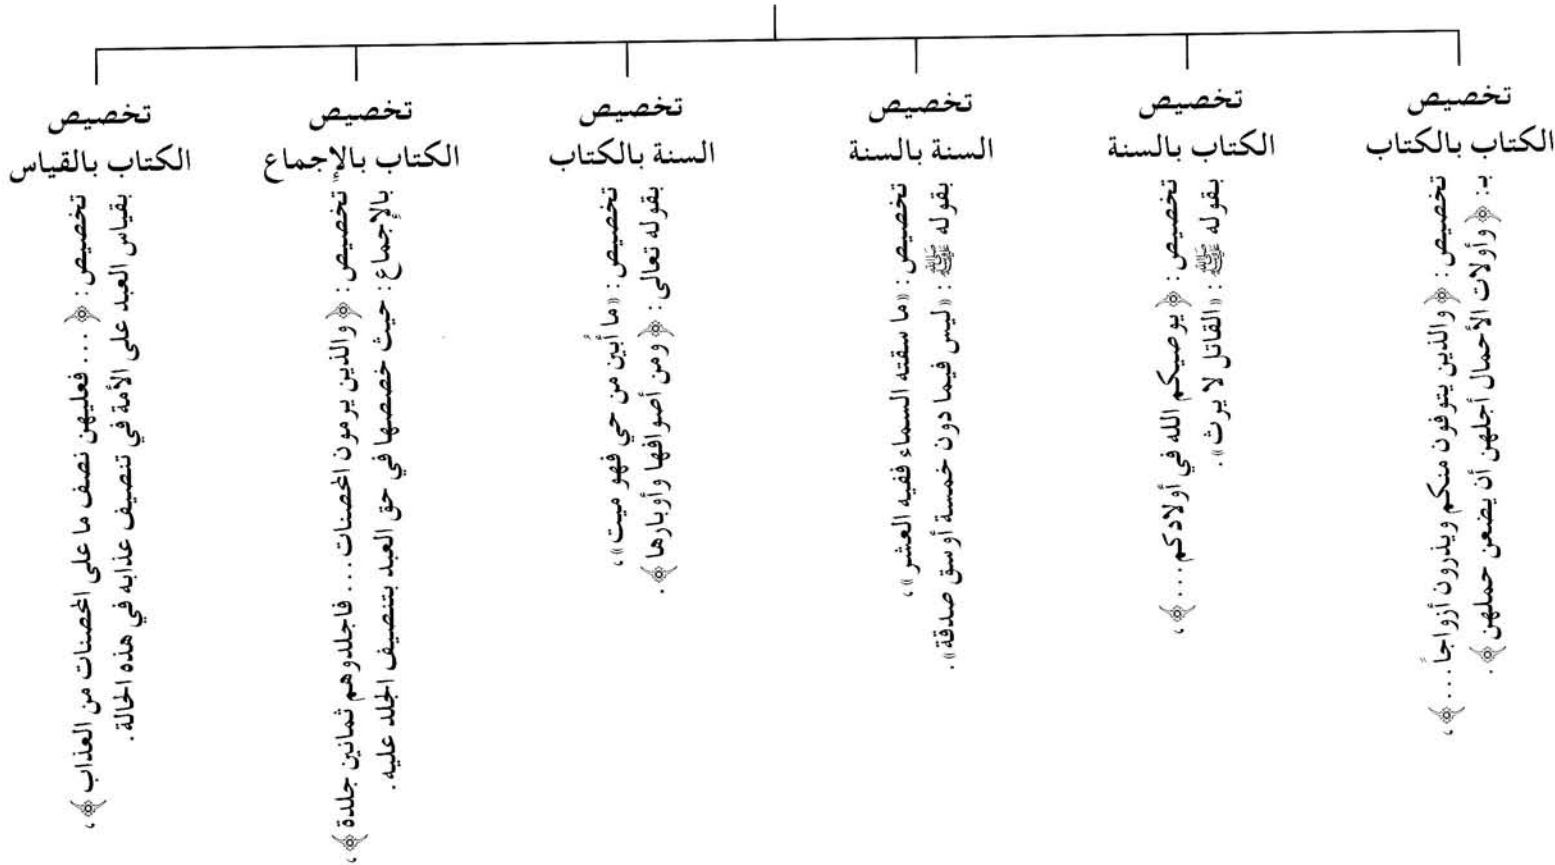 تخصيص
الكتاب بالكتاب
تخصيص : ﴿ والذين يتوفون منكم ويذرون أزواجاً ... ﴾ ،
بـ : ﴿ وأولات الأحمال أجلهن أن يضعن حملهن ﴾ .
تخصيص
الكتاب بالسنة
تخصيص : ﴿ يوصيكم الله في أولادكم ... ﴾ ،
بقوله ﷺ : « القاتل لا يرث » .
تخصيص
السنة بالسنة
تخصيص : « ما سقته السماء ففيه العشر » ،
بقوله ﷺ : « ليس فيما دون خمسة أوسق صدقة » .
تخصيص
السنة بالكتاب
تخصيص : « ما أُبين من حي فهو ميت » ،
بقوله تعالى : ﴿ ومن أصوافها وأوبارها ﴾ .
تخصيص
الكتاب بالإجماع
تخصيص : ﴿ والذين يرمون المحصنات ... فاجلدوهم ثمانين جلدة ﴾ ،
بالإجماع : حيث خصصها في حق العبد بتنصيف الجلد عليه .
تخصيص
الكتاب بالقياس
تخصيص : ﴿ ... فعليهن نصف ما على المحصنات من العذاب ﴾ ،
بقياس العبد على الأمة في تنصيف عذابه في هذه الحالة .